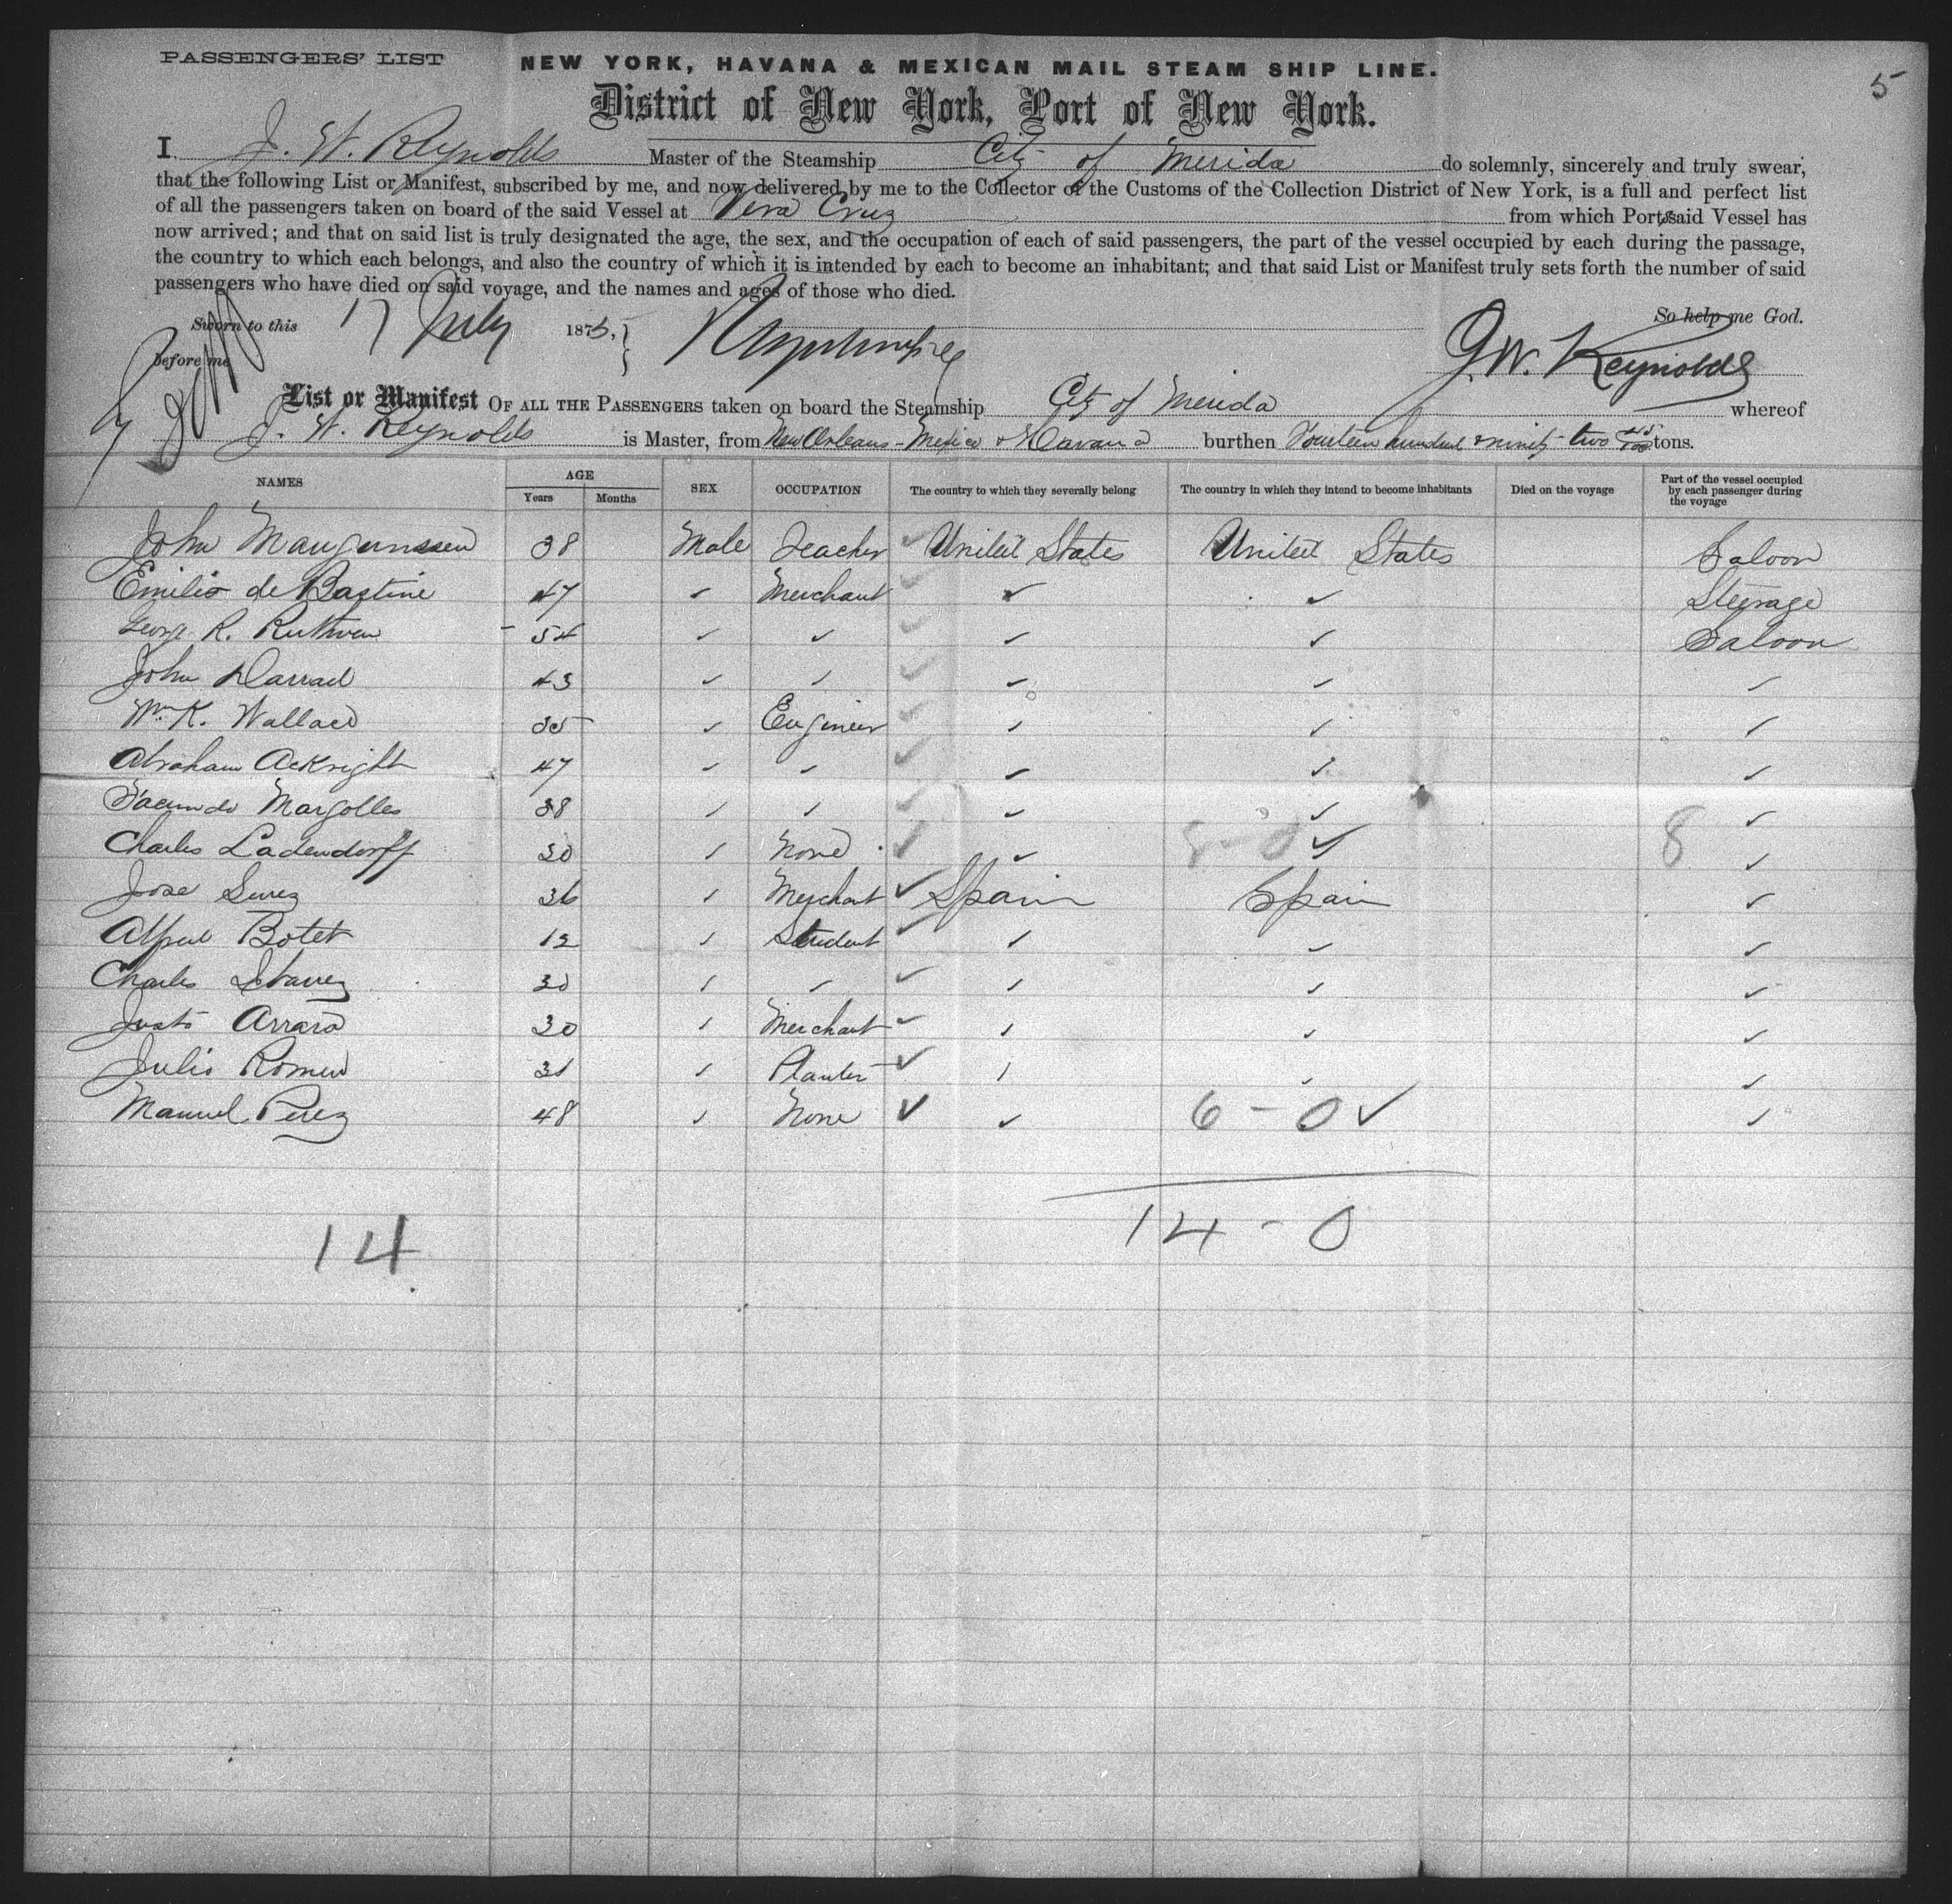 PASSENGERS' LIST
NEW YORK, HAVANA & MEXICAN MAIL STEAM SHIP LINE.
5
District of New York, Port of New York.
I J. W. Reynolds Master of the Steamship City of Merida do solemnly, sincerely and truly swear,
that the following List or Manifest, subscribed by me, and now delivered by me to the Collector of the Customs of the Collection District of New York, is a full and perfect list
of all the passengers taken on board of the said Vessel at Vera Cruz from which Port said Vessel has
now arrived; and that on said list is truly designated the age, the sex, and the occupation of each of said passengers, the part of the vessel occupied by each during the passage,
the country to which each belongs, and also the country of which it is intended by each to become an inhabitant; and that said List or Manifest truly sets forth the number of said
passengers who have died on said voyage, and the names and ages of those who died.
So help me God.
Sworn to this 17 July 1875,
before me J. W. Reynolds
List or Manifest OF ALL THE PASSENGERS taken on board the Steamship City of Merida whereof
J. W. Reynolds is Master, from New Orleans - Mexico & Havana burthen Fourteen hundred & ninety-two tons.
NAMES AGE Years Months SEX OCCUPATION The country to which they severally belong The country in which they intend to become inhabitants Died on the voyage Part of the vessel occupied by each passenger during the voyage
John 38 Male Teacher ✓ United States United States Saloon
Emilio de Bastine 47 ✓ Merchant ✓ ✓ ✓ Steerage
George R. Ruthven 54 ✓ ✓ ✓ ✓ ✓ Saloon
John 43 ✓ ✓ ✓ ✓ ✓ ✓
Wm K. Wallace 35 ✓ Engineer ✓ ✓ ✓ ✓
Abraham Ackright 47 ✓ ✓ ✓ ✓ ✓ ✓
Facundo Margolles 38 ✓ ✓ ✓ ✓ ✓ ✓
Charles Ladendorff 30 ✓ None ✓ ✓ 8-0 ✓ 8 ✓
Jose 36 ✓ Merchant ✓ Spain Spain ✓
Alfred Botet 12 ✓ Student ✓ ✓ ✓ ✓
Charles Ibanez 30 ✓ ✓ ✓ ✓ ✓ ✓
Justo 30 ✓ Merchant ✓ ✓ ✓ ✓
Julio Romeu 31 ✓ Planter ✓ ✓ ✓ ✓
Manuel Perez 48 ✓ None ✓ ✓ 6-0 ✓ ✓
14 14-0